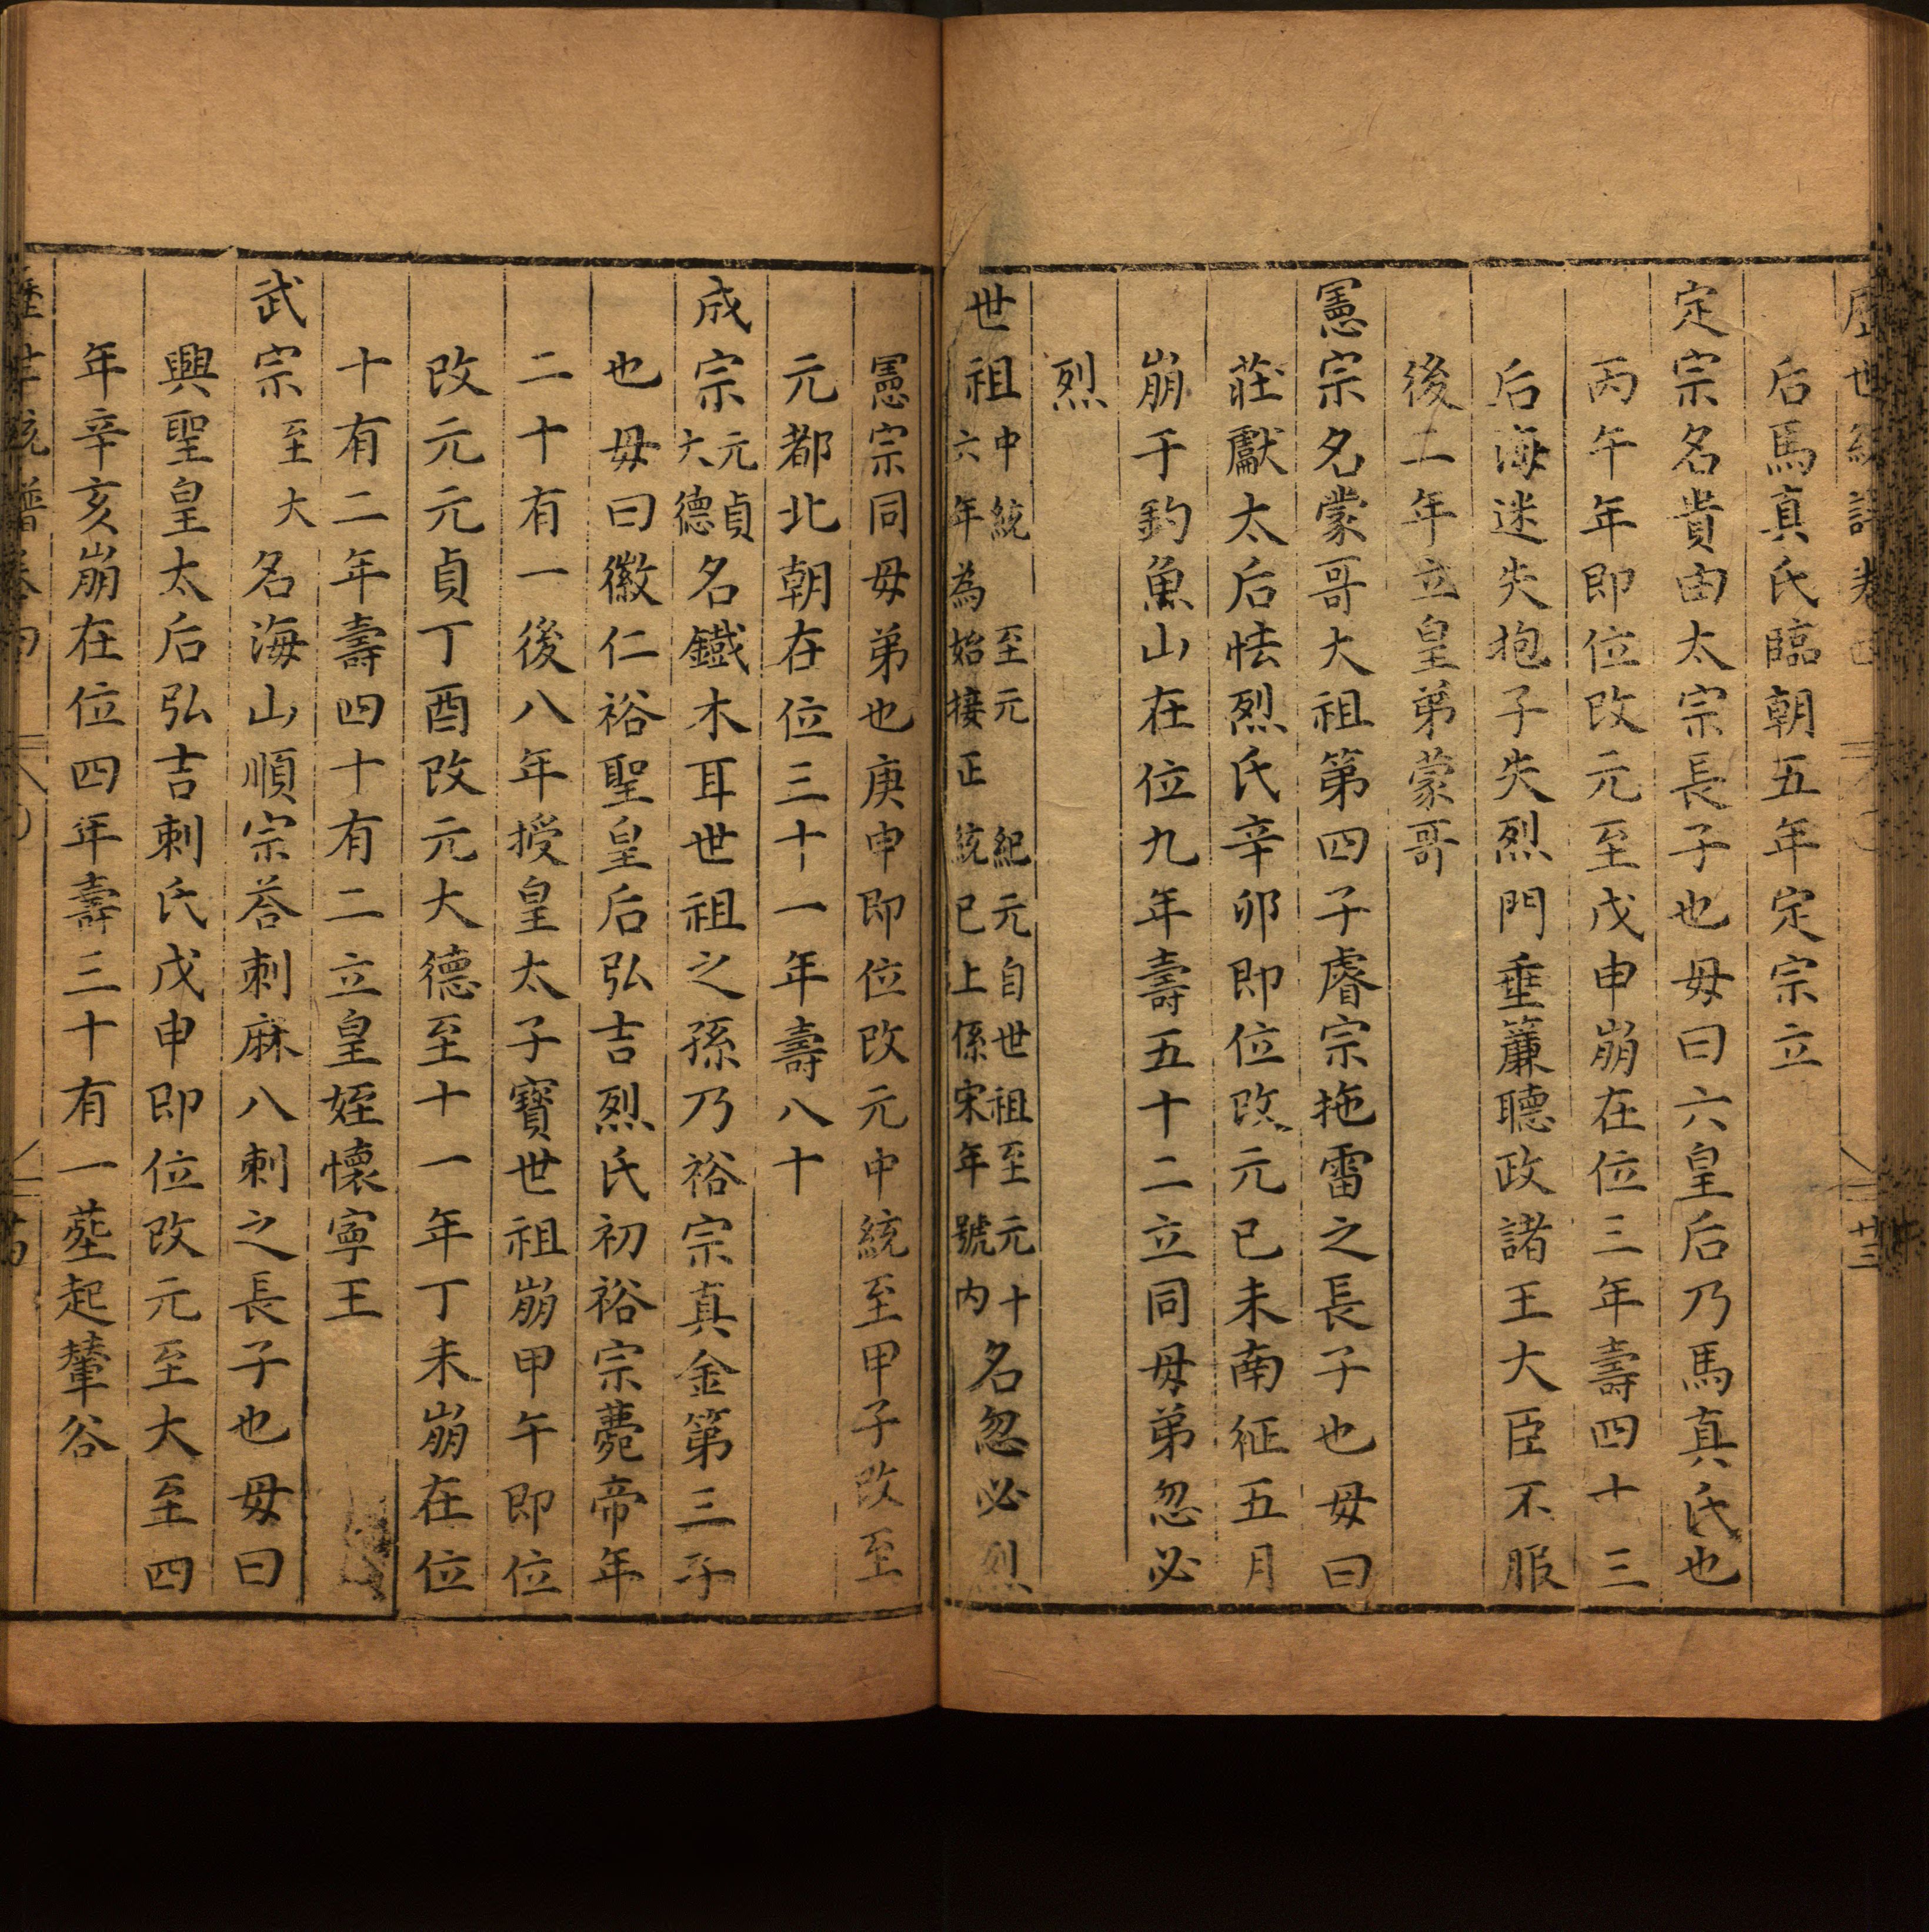 歷世統譜卷四 廿三
后馬真氏臨朝五年定宗立
定宗名貴由太宗長子也母曰六皇后乃馬真氏也
丙午年即位改元至戊申崩在位三年壽四十三
后海迷失抱子失烈門垂簾聽政諸王大臣不服
後二年立皇弟蒙哥
憲宗名蒙哥大祖第四子睿宗拖雷之長子也母曰
莊獻太后怯烈氏辛卯即位改元已未南征五月
崩于釣魚山在位九年壽五十二立同母弟忽必
烈
世祖中統 至元 紀元自世祖至元十六年為始接正統已上係宋年號内名忽必烈
憲宗同母弟也庚申即位改元中統至甲子改至
元都北朝在位三十一年壽八十
成宗元貞大德名鐵木耳世祖之孫乃裕宗真金第三子
也母曰徽仁裕聖皇后弘吉烈氏初裕宗薨帝年
二十有一後八年授皇太子寶世祖崩甲午即位
改元元貞丁酉改元大德至十一年丁未崩在位
十有二年壽四十有二立皇姪懷寧王
武宗至大名海山順宗荅刺麻八刺之長子也母曰
興聖皇太后弘吉刺氏戊申即位改元至大至四
年辛亥崩在位四年壽三十有一塟起輦谷
統譜卷四